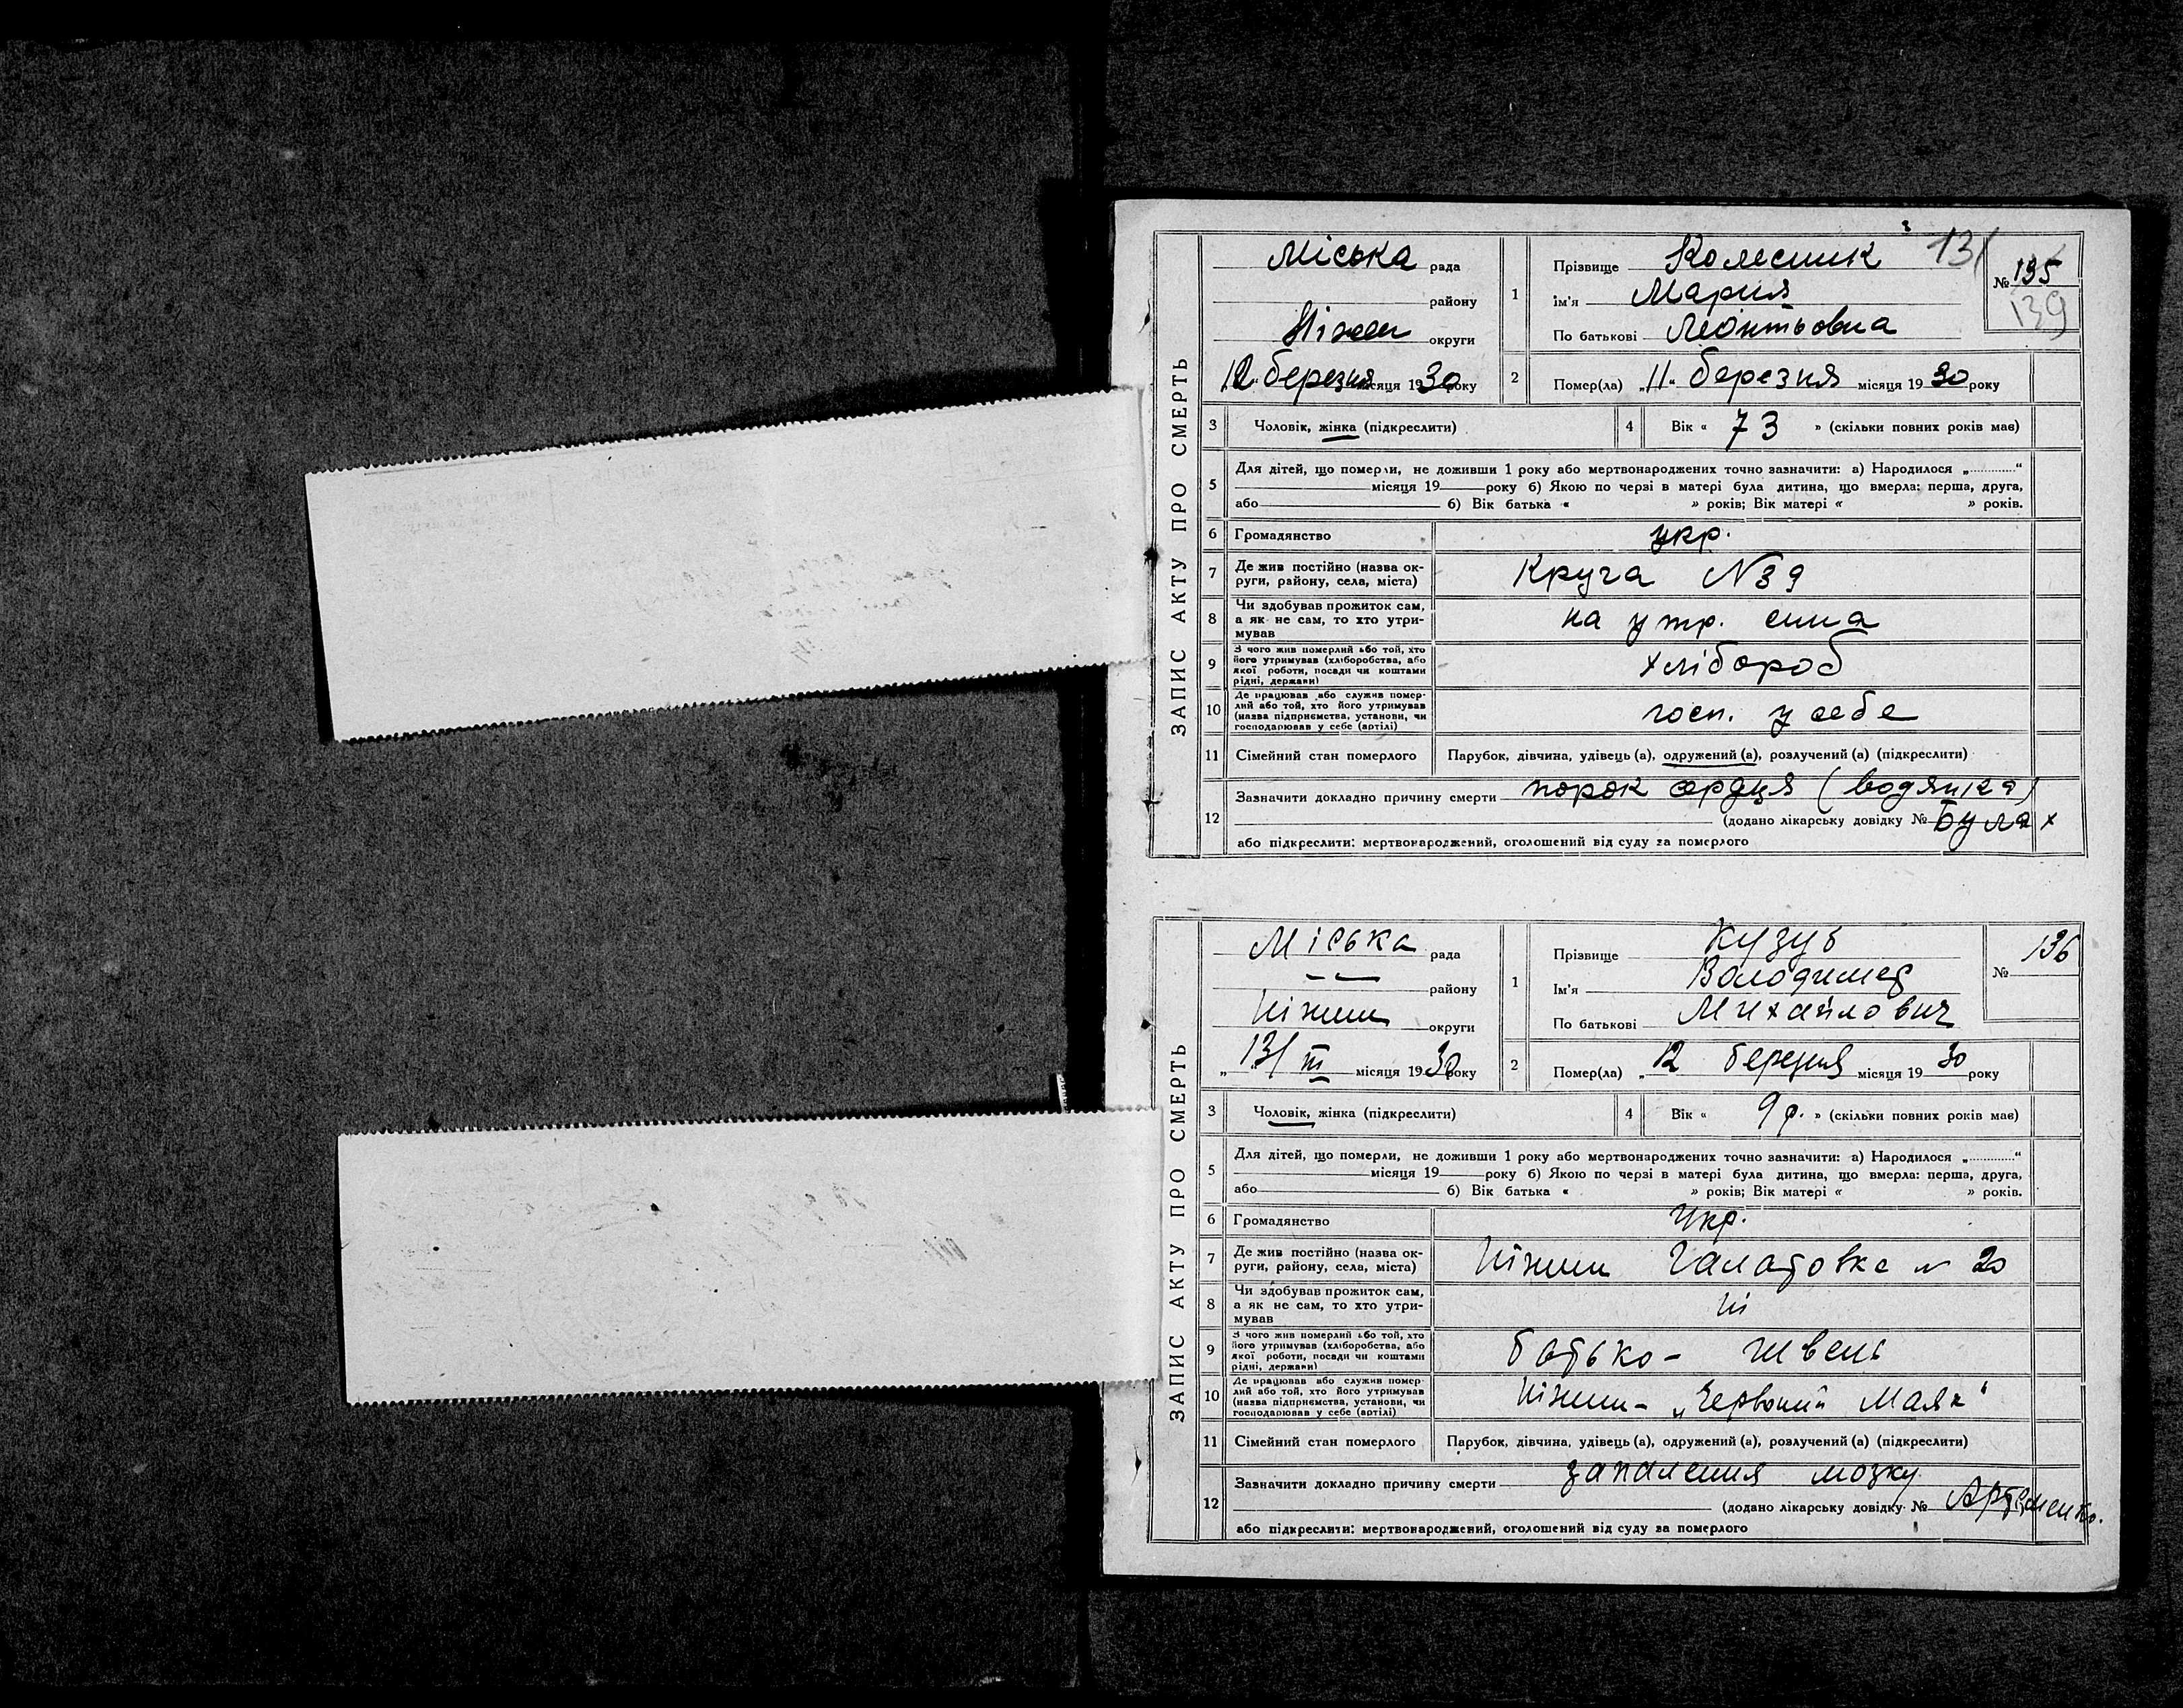 131
ЗАПИС АКТУ ПРО СМЕРТЬ
Міська рада
району
Ніжен округи
12 березня місяця 1930 року
1
Прізвище Колесник
ім'я Мария
По батькові Леонтьовна
№ 135
139
2 Помер(ла) „11“ березня місяця 1930 року
3 Чоловік, жінка (підкреслити)
4 Вік « 73 » (скільки повних років має)
5 Для дітей, що померли, не доживши 1 року або мертвонароджених точно зазначити: а) Народилося „............“
місяця 19 року б) Якою по черзі в матері була дитина, що вмерла: перша, друга,
або б) Вік батька « » років; Вік матері « » років.
6 Громадянство укр.
7 Де жив постійно (назва округи, району, села, міста) Круча N39
8 Чи здобував прожиток сам, а як не сам, то хто утримував на утр. сина
9 З чого жив померлий або той, хто його утримував (хліборобства, або якої роботи, посади чи коштами рідні, держави) хлібороб
10 Де працював або служив померлий або той, хто його утримував (назва підприємства, установи, чи господарював у себе (артілі) госп. у себе
11 Сімейний стан померлого Парубок, дівчина, удівець (а), одружений (а), розлучений (а) (підкреслити)
12 Зазначити докладно причину смерти порок сердця (водянка)
(додано лікарську довідку № Булах
або підкреслити: мертвонароджений, оголошений від суду за померлого
ЗАПИС АКТУ ПРО СМЕРТЬ
Міська рада
— — району
Ніжин округи
„ 13/III місяця 1930 року
1
Прізвище Кузуб
Ім'я Володимер
По батькові Михайлович
№ 136
2 Помер(ла) „ 12 березня місяця 1930 року
3 Чоловік, жінка (підкреслити)
4 Вік « 9 р. » (скільки повних років має)
5 Для дітей, що померли, не доживши 1 року або мертвонароджених точно зазначити: а) Народилося „............“
місяця 19 року б) Якою по черзі в матері була дитина, що вмерла: перша, друга,
або б) Вік батька « » років; Вік матері « » років.
6 Громадянство Укр.
7 Де жив постійно (назва округи, району, села, міста) Ніжин Галатовка N 20
8 Чи здобував прожиток сам, а як не сам, то хто утримував Ні
9 З чого жив померлий або той, хто його утримував (хліборобства, або якої роботи, посади чи коштами рідні, держави) батько – швець
10 Де працював або служив померлий або той, хто його утримував (назва підприємства, установи, чи господарював у себе (артілі) Ніжин – „Червоний Маяк“
11 Сімейний стан померлого Парубок, дівчина, удівець (а), одружений (а), розлучений (а) (підкреслити)
12 Зазначити докладно причину смерти запалення мозку
(додано лікарську довідку № Артеменко.
або підкреслити: мертвонароджений, оголошений від суду за померлого